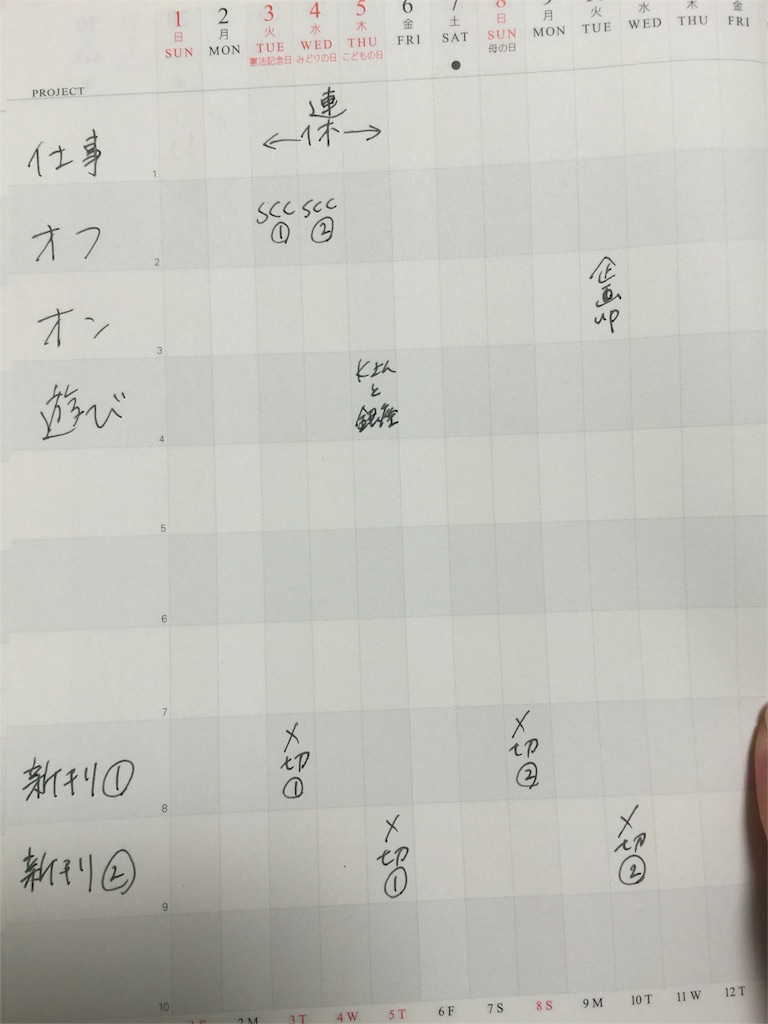 1 2 3 4 5 6 7 8 9 火 水 木 金
日 月 火 水 木 金 土 日 月 TUE WED THU FRI
SUN MON TUE WED THU FRI SAT SUN MON
憲法記念日 みどりの日 こどもの日 母の日
PROJECT
仕事
連
休
1
オフ
SCC SCC
① ②
2
オン
企
画
up
3
遊び
Kさん
と
銀座
4
5
6
7
新刊①
〆 〆
切 切
① ②
8
新刊②
〆 〆
切 切
① ②
9
10
1 S 2 M 3 T 4 W 5 T 6 F 7 S 8 S 9 M 10 T 11 W 12 T